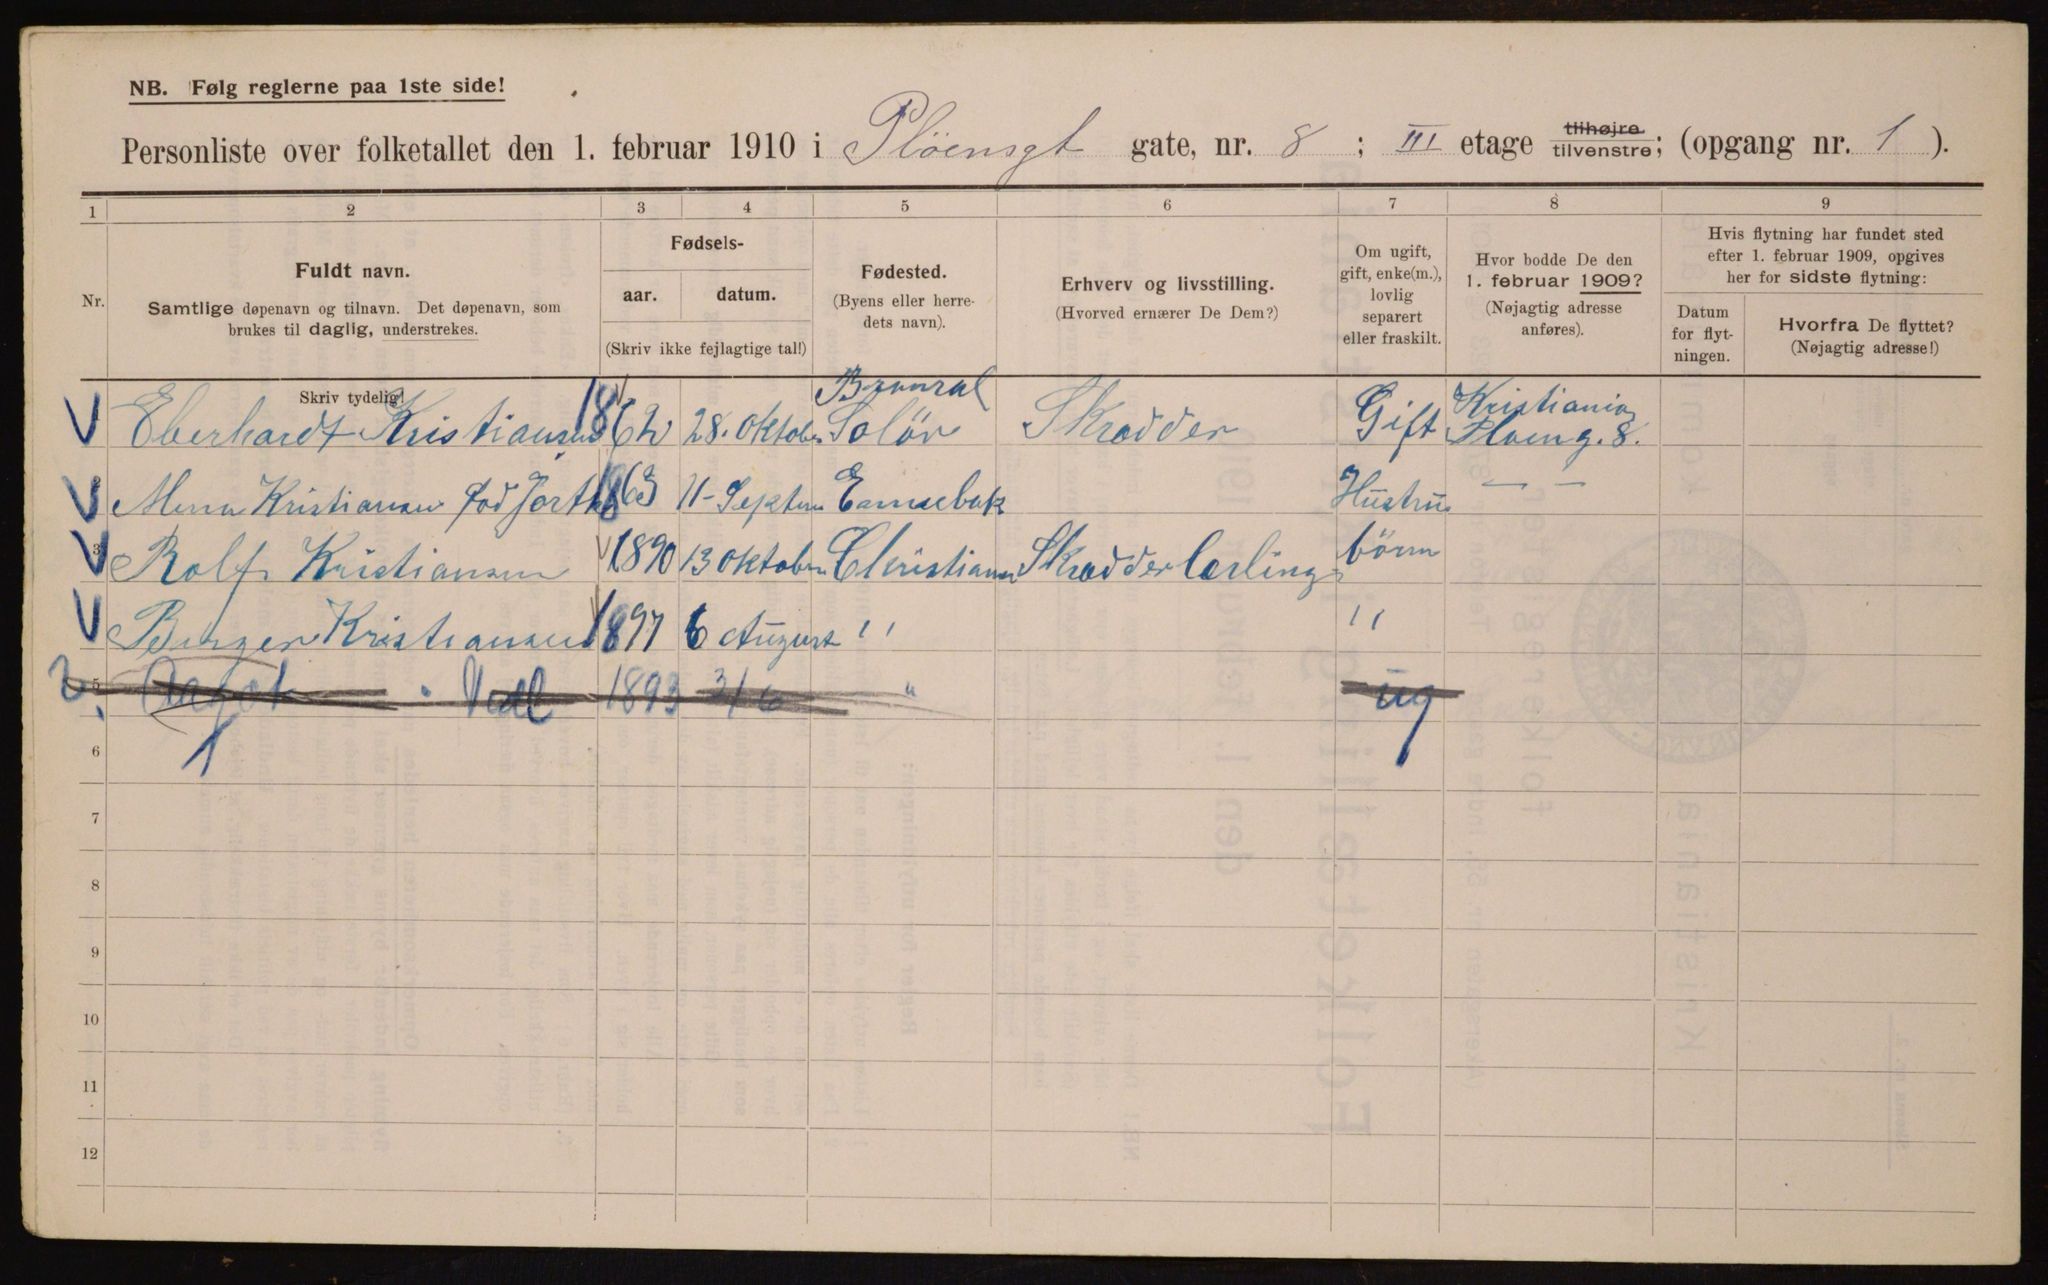 NB. Følg reglerne paa 1ste side!
Personliste over folketallet den 1. februar 1910 i Plöensgt gate, nr. 8 ; III etage tilhøjre tilvenstre; (opgang nr. 1 ).
1 2 3 4 5 6 7 8 9
Nr.
Fuldt navn.
Samtlige døpenavn og tilnavn. Det døpenavn, som
brukes til daglig, understrekes.
Fødsels-
aar. datum.
(Skriv ikke fejlagtige tal!)
Fødested.
(Byens eller herre-
dets navn).
Erhverv og livsstilling.
(Hvorved ernærer De Dem?)
Om ugift,
gift, enke(m.),
lovlig
separert
eller fraskilt.
Hvor bodde De den
1. februar 1909?
(Nøjagtig adresse
anføres).
Hvis flytning har fundet sted
efter 1. februar 1909, opgives
her for sidste flytning:
Datum
for flyt-
ningen.
Hvorfra De flyttet?
(Nøjagtig adresse!)
Skriv tydelig!
V Eberhardt Kristiansen 1862 28. Oktober Solör Skrædder Gift Kristiania
Ploeng. 8.
V Kristiansen föd 1863 11 – Septem Hustru — —
3 V Rolf Kristiansen 1890 13 Oktober Christiania Skrædder Lærling börn
V Birger Kristiansen 1897 6 August " "
5 Aagot 1893 " ug
6
7
8
9
10
11
12